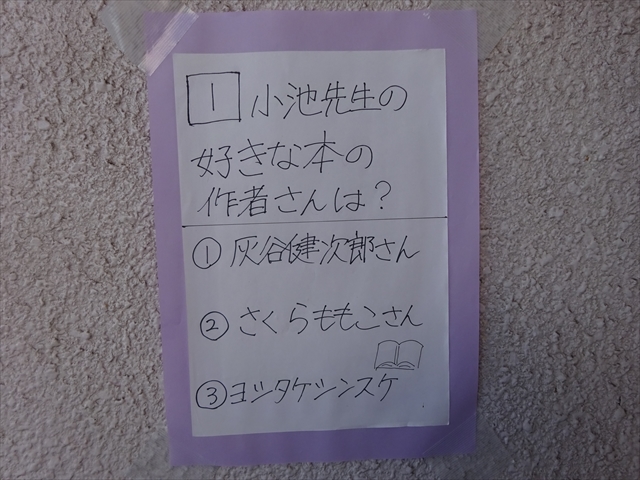 1 小池先生の
好きな本の
作者さんは？
① 灰谷健次郎さん
② さくらももこさん
③ ヨシタケシンスケ